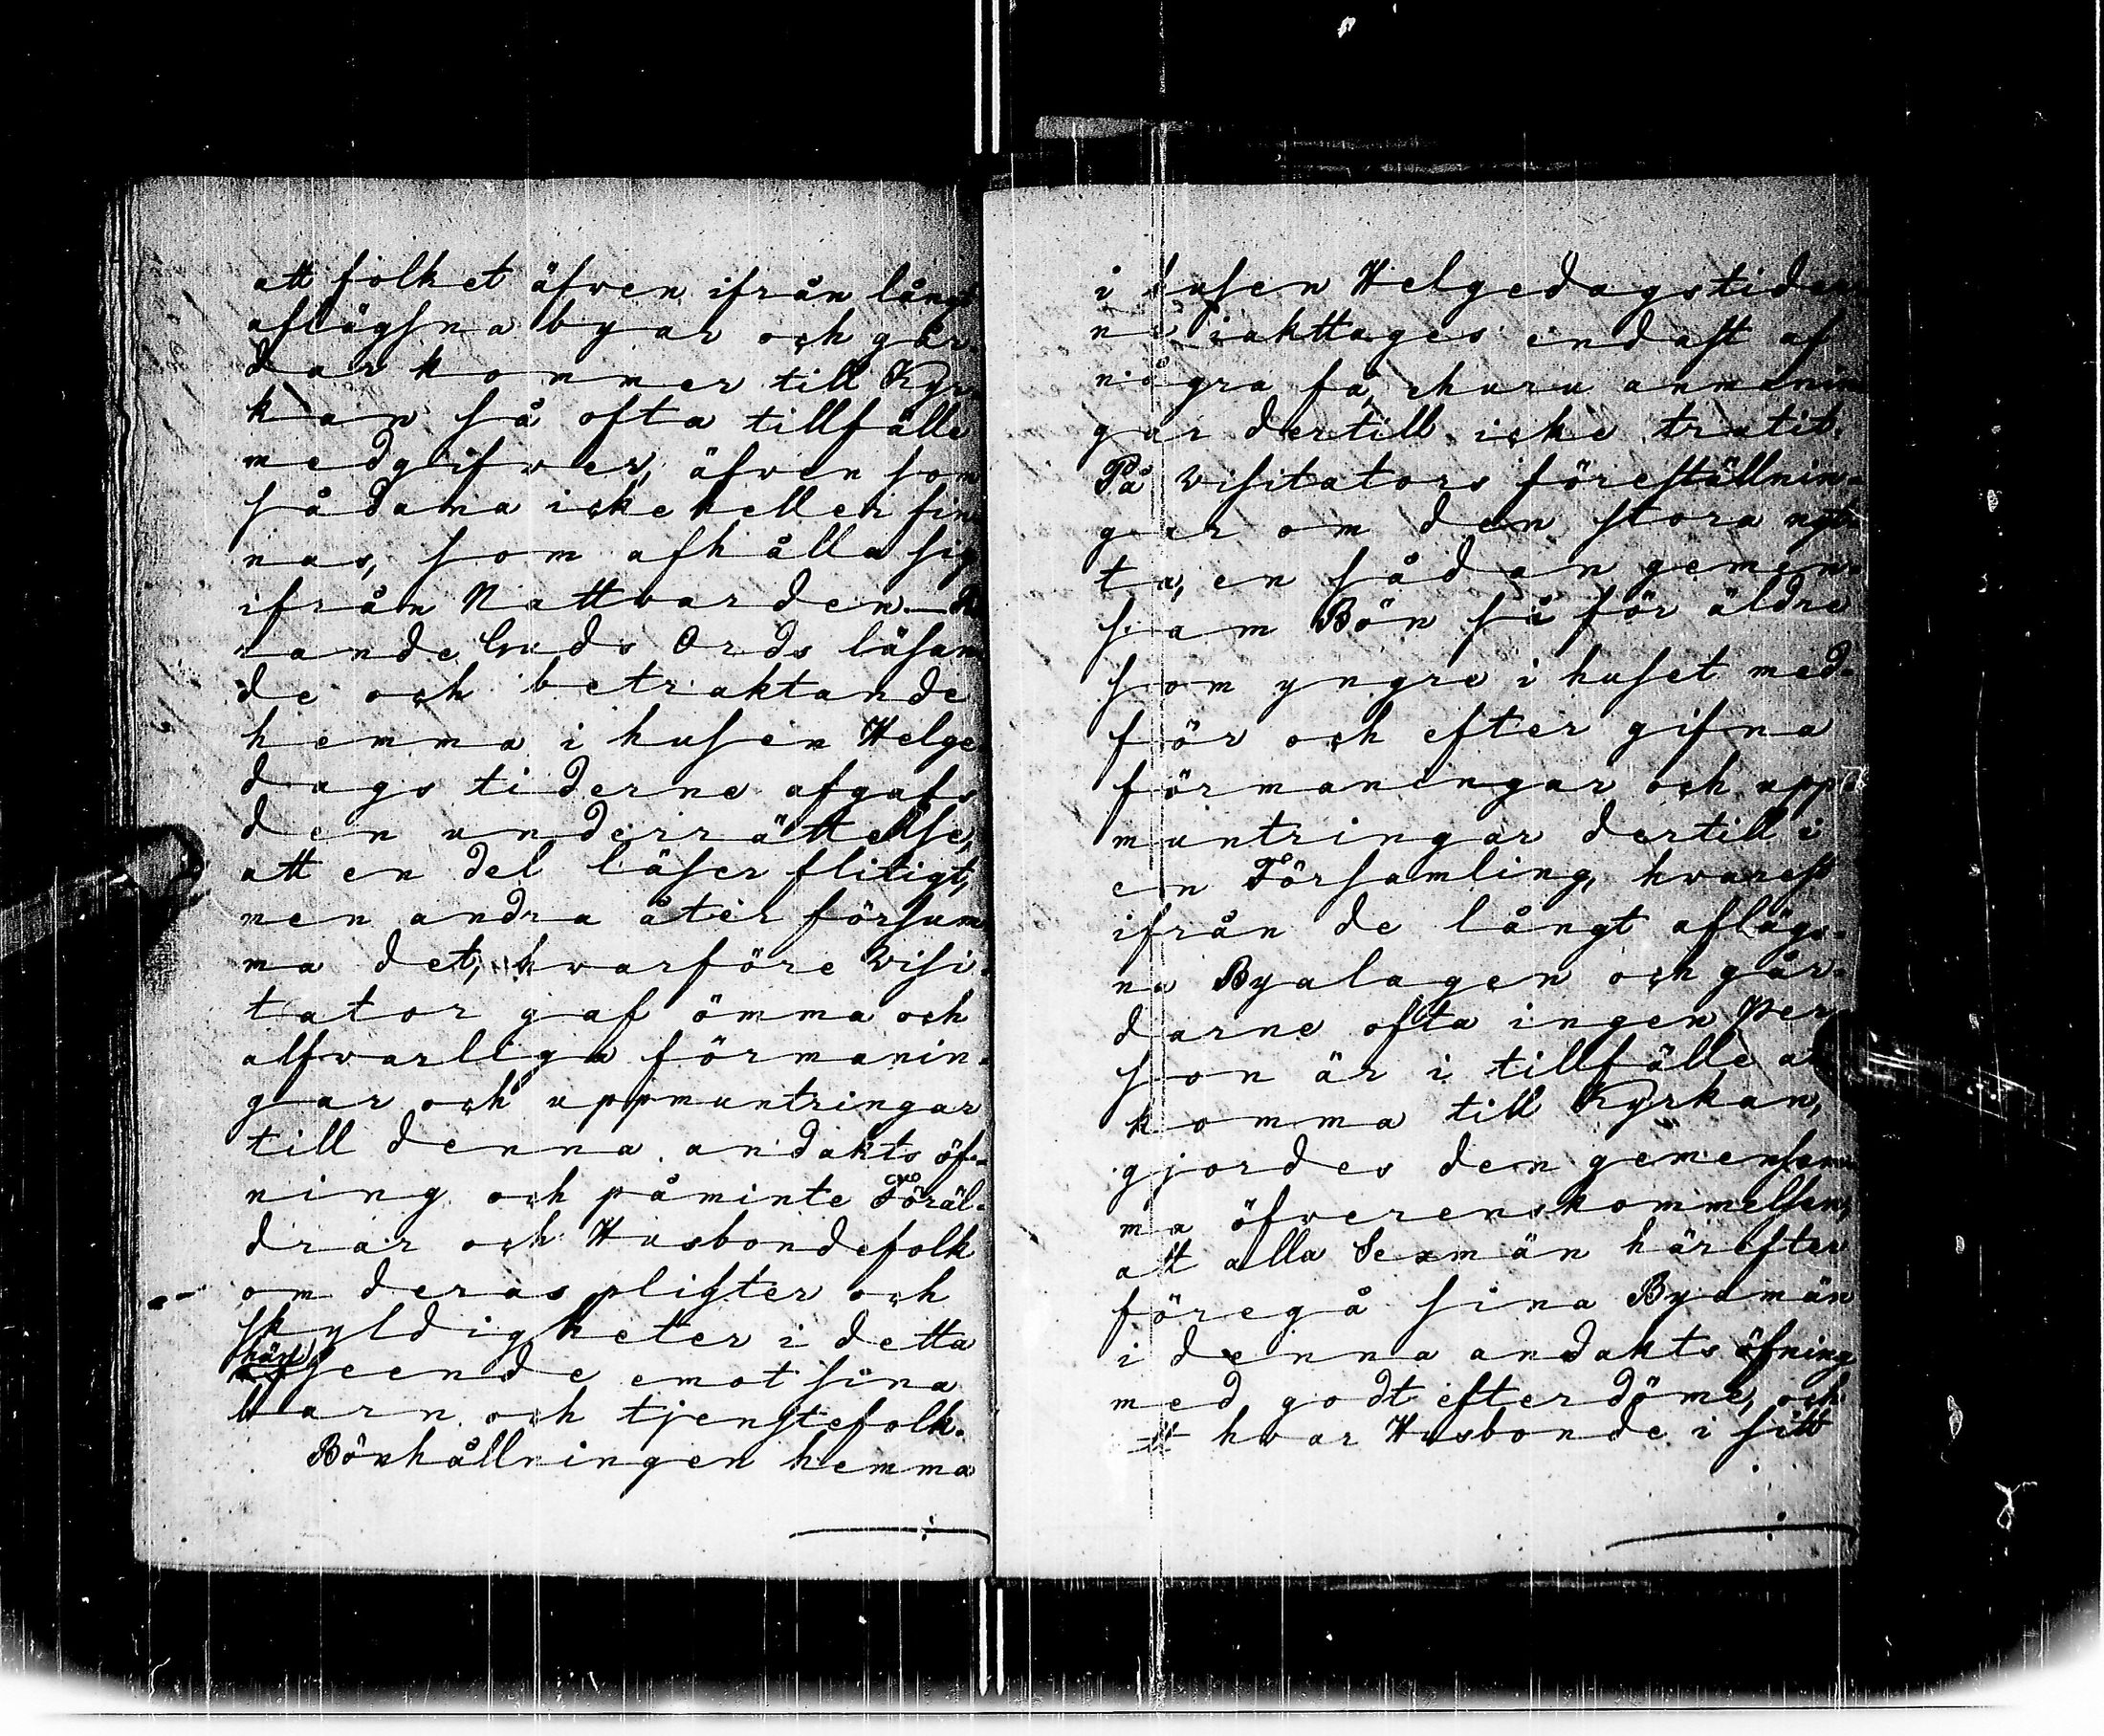 att folket äfwen ifrån långt
aflägsna byar och går-
dar kommer till Kyr-
kan så ofta tillfälle
medgifwer, äfwen som
sådana icke heller fin
nas, som afhålla sig
ifrån Nattvarden.
rande Guds Ords läsan
de och betraktande
hemma i husen Helge
dags tiderne afgafs
den underrättelse,
att en del läser flitigt,
men andra åter försum
ma det, hwarföre Visi-
tator gaf ömma och
alfwarliga förmanin-
gar och uppmuntringar
till denna andakts öf-
ning och påminte Föräl-
drar och Husbondefolk
om deras pligter och
skyldigheter i detta
hän
seende emot sina
barn och tjenstefolk.
Bönhållningen hemma
i husen Helgedagstider
ne iakttages endast af
några få, ehuru anmanin
gar dertill icke trutit.
På Visitators föreställnin-
gar om den stora nyt-
ta, en sådan gemen-
sam Bön så för äldre
som yngre i huset med-
för och efter gifna
förmaningar och upp
muntringar dertill i
en Församling, hwarest
ifrån de långt aflägs-
na Byalagen och går-
darne ofta ingen Per
son är i tillfälle a
komma till Kyrkan,
gjordes den gemensam
ma öfwerenskommelsen,
att alla Sexmän härefter
föregå sina Byamän
i denna andakts öfning
med godt efterdöme, och
att hwar Husbonde i sitt